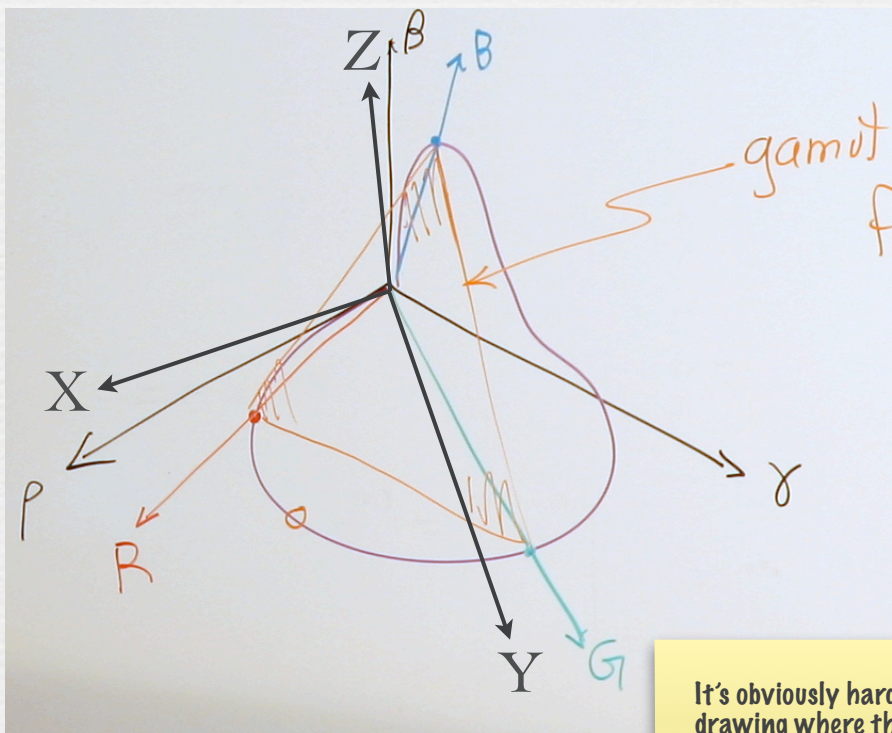 Z
β
B
gamut
X
ρ
γ
R
Y
G
It's obviously hard
drawing where th